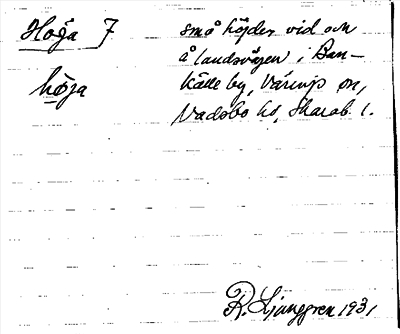 Höga F små höjder vid och
å landsvägen i Ban-
höja källe by, Värings sn,
Vadsbo hd, Skarab. l.
R. Ljunggren 1931